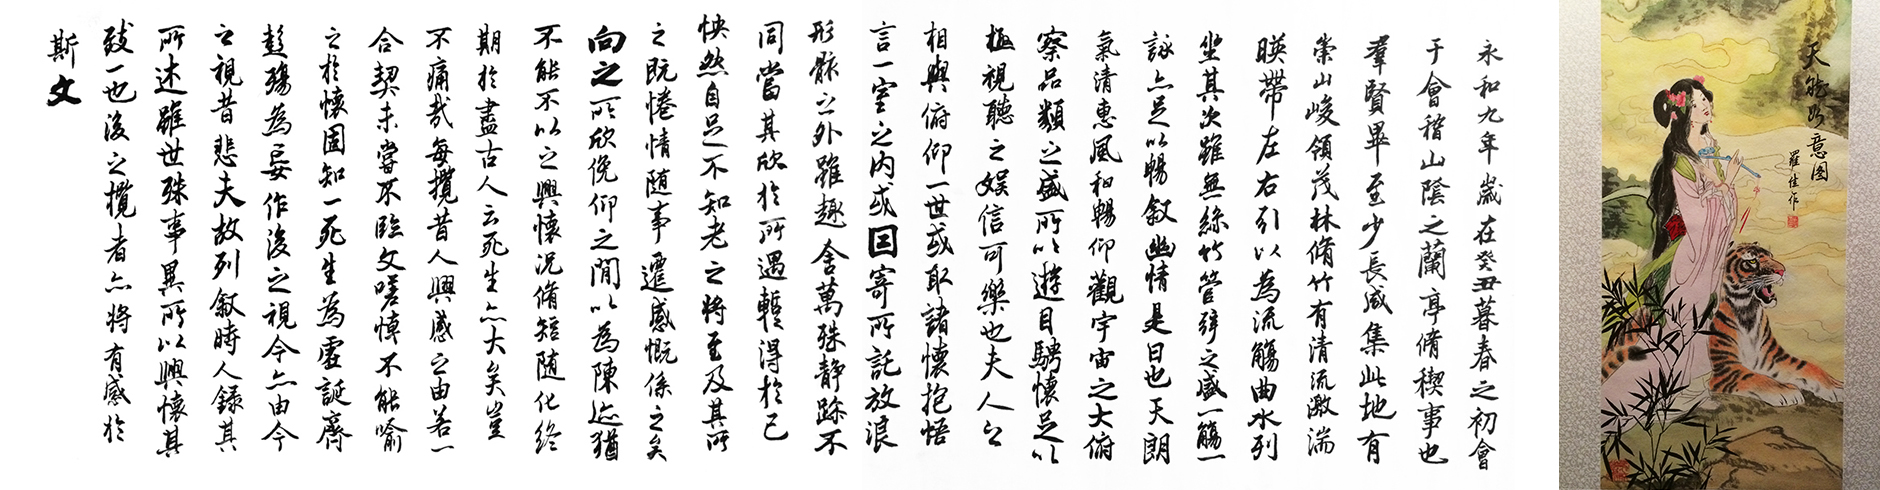 永和九年歲在癸丑暮春之初會
于會稽山陰之蘭亭脩稧事也
羣賢畢至少長咸集此地有
崇山峻領茂林脩竹有清流激湍
暎帶左右引以為流觴曲水列
坐其次雖無絲竹管弦之盛一觴一
詠亦足以暢敘幽情是日也天朗
氣清惠風和暢仰觀宇宙之大俯
察品類之盛所以遊目騁懷足以
極視聽之娛信可樂也夫人之
相與俯仰一世或取諸懷抱悟
言一室之內或因寄所託放浪
形骸之外雖趣舍萬殊靜躁不
同當其欣於所遇暫得於己
怏然自足不知老之將至及其所
之既惓情隨事遷感慨係之矣
向之所欣俛仰之閒以為陳迹猶
不能不以之興懷況脩短隨化終
期於盡古人云死生亦大矣豈
不痛哉每攬昔人興感之由若一
合契未嘗不臨文嗟悼不能喻
之於懷固知一死生為虛誕齊
彭殤為妄作後之視今亦由今
之視昔悲夫故列敘時人錄其
所述雖世殊事異所以興懷其
致一也後之攬者亦將有感於
斯文
天意图
羅佳作